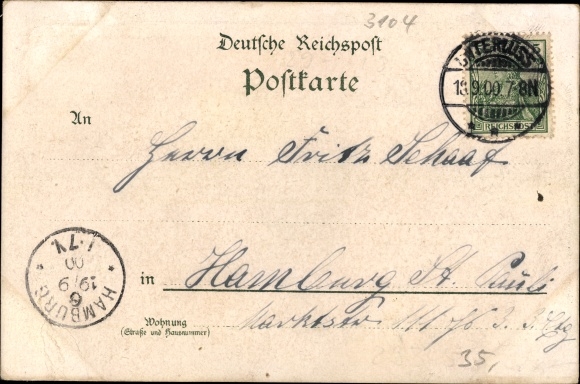 3104
Deutsche Reichspost
Postkarte
UNTERLÜSS
18.9.00.7-8N
REICHSPOST
An
Herrn Fritz Schaaf
HAMBURG
6
19/9
00
1-7V.
in Hamburg St. Pauli
Wohnung
(Straße und Hausnummer)
Marktstr 111 3. Etg
35,